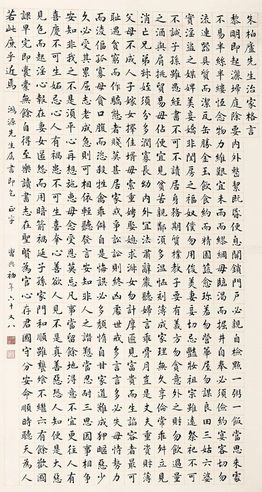 朱柏廬先生治家格言
黎明即起灑掃庭除要內外整潔既昏便息關鎖門戶必親自檢點一粥一飯當思來處
不易半絲半縷恆念物力維艱宜未雨而綢繆毋臨渴而掘井自奉必須儉約宴客切勿
流連器具質而潔瓦缶勝金玉飲食約而精園蔬愈珍饈勿營華屋勿謀良田三姑六婆
實淫盜之媒婢美妾嬌非閨房之福奴僕勿用俊美妻妾切忌豔妝祖宗雖遠祭祀不可
不誠子孫雖愚經書不可不讀居身務期質樸教子要有義方勿貪意外之財勿飲過量
之酒與肩挑貿易勿佔便宜見貧苦親鄰須多溫恤刻薄成家理無久享倫常乖舛立見
消亡兄弟叔姪須分多潤寡長幼內外宜法肅辭嚴聽婦言乖骨肉豈是丈夫重資財薄
父母不成人子嫁女擇佳婿毋索重聘娶媳求淑女勿計厚奩見富貴而生諂容者最可
恥遇貧窮而作驕態者賤莫甚居家戒爭訟訟則終凶處世戒多言言多必失毋恃勢力
而凌逼孤寡毋貪口腹而恣殺牲禽乖僻自是悔誤必多頹惰自甘家道難成狎暱惡少
久必受其累屈志老成急則可相依輕聽發言安知非人之譖愬當忍耐三思因事相爭
安知非我之不是須平心再想施惠無念受恩莫忘凡事當留餘地得意不宜再往人有
喜慶不可生妒忌心人有禍患不可生喜幸心善欲人見不是真善惡恐人知便是大惡
見色而起淫心報在妻女匿怨而用暗箭禍延子孫家門和順雖饔飧不繼亦有餘歡國
課早完即囊橐無餘自得至樂讀書志在聖賢為官心存君國守分安命順時聽天為人
若此庶乎近焉 鴻源先生屬書即乞 正字 年六十又八